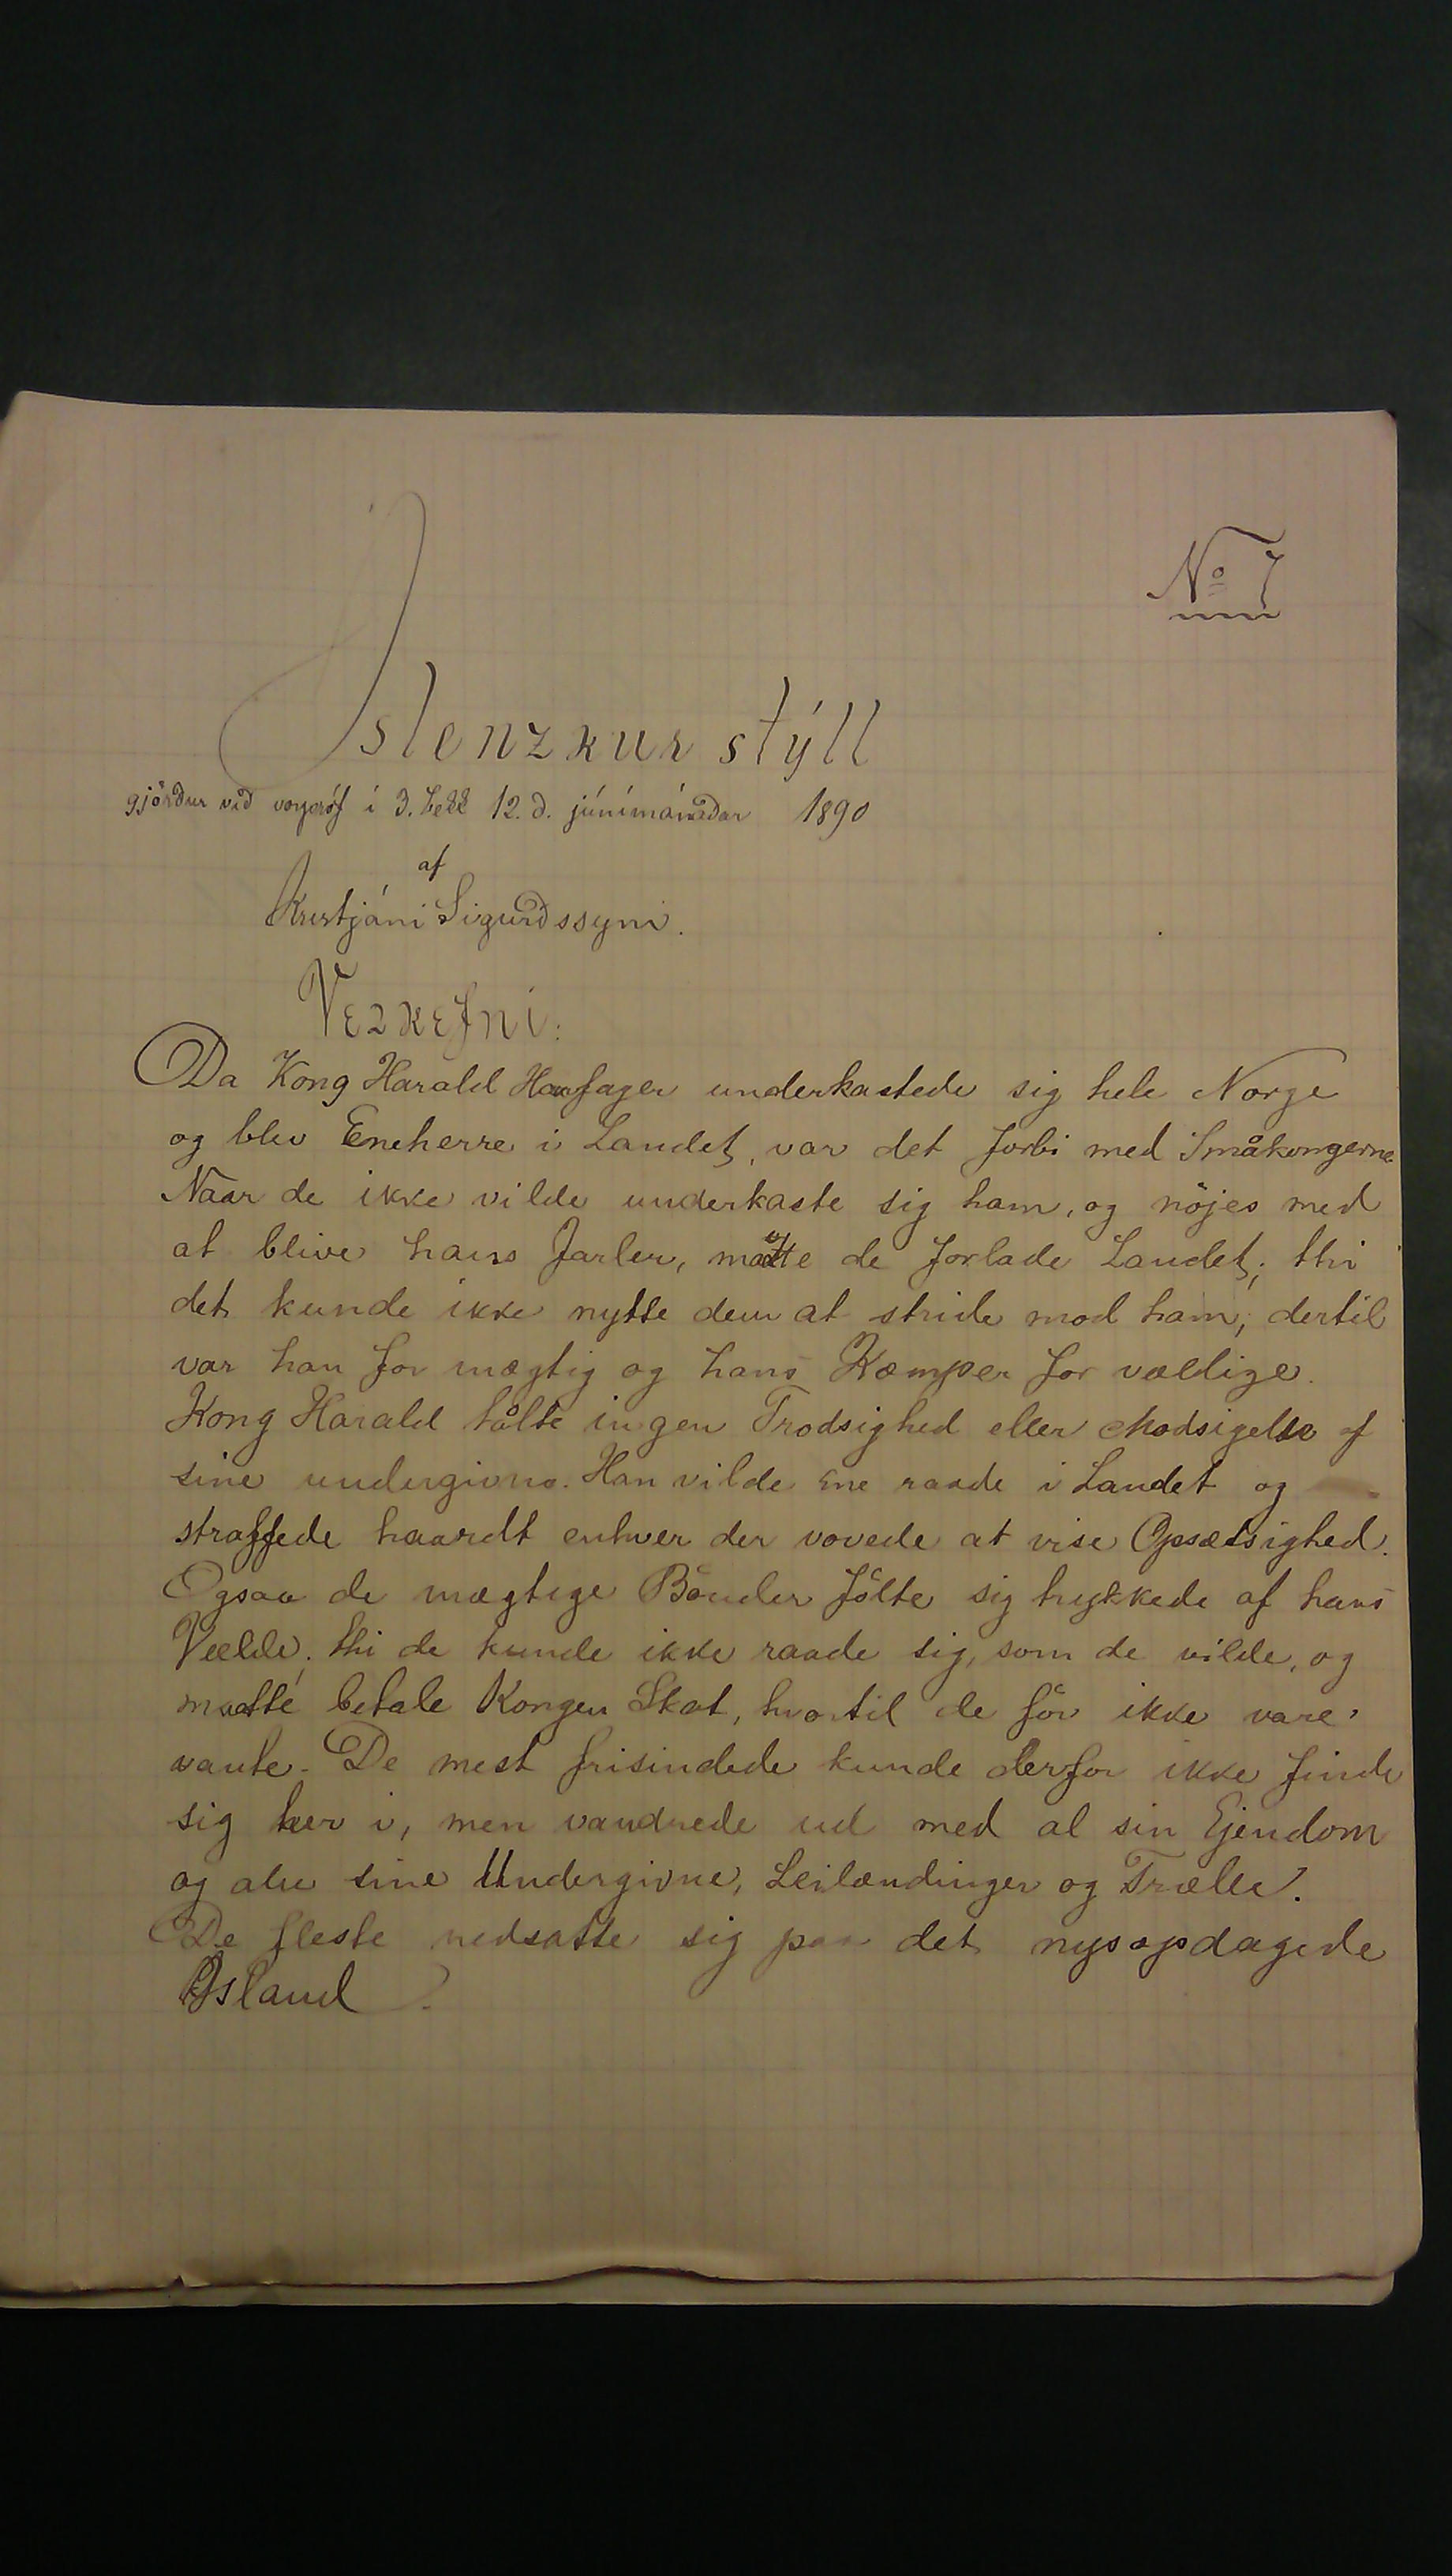 No 7
Íslenzkur stýll
gjörður við vorpróf í 3. bekk 12. d. júnímánaðar 1890
af
Kristjáni Sigurðssyni.
Verkefni:
Da Kong Harald Haarfager underkastede sig hele Norge
og blev Eneherre i Landet, var det forbi med Småkongerne.
Naar de ikke vilde underkaste sig ham, og nöjes med
at blive hans Jarler, maatte de forlade Landet; thi
det kunde ikke nytte dem at stride mod ham; dertil
var han for mægtig og hans Kæmper for vældige.
Kong Harald tålte ingen Trodsighed eller Modsigelse af
sine undergivne. Han vilde ene raade i Landet og
straffede haardt enhver der vovede at vise Opsætsighed.
Ogsaa de mægtige Bönder fölte sig trykkede af hans
Vælde; thi de kunde ikke raade sig, som de vilde, og
maatte betale Kongen Skat, hvortil de för ikke vare
vante. De mest frisindede kunde derfor ikke finde
sig her i, men vandrede ud med al sin Ejendom
og alle sine Undergivne, Leilændinger og Trælle.
De fleste nedsatte sig paa det nysopdagede
Island.